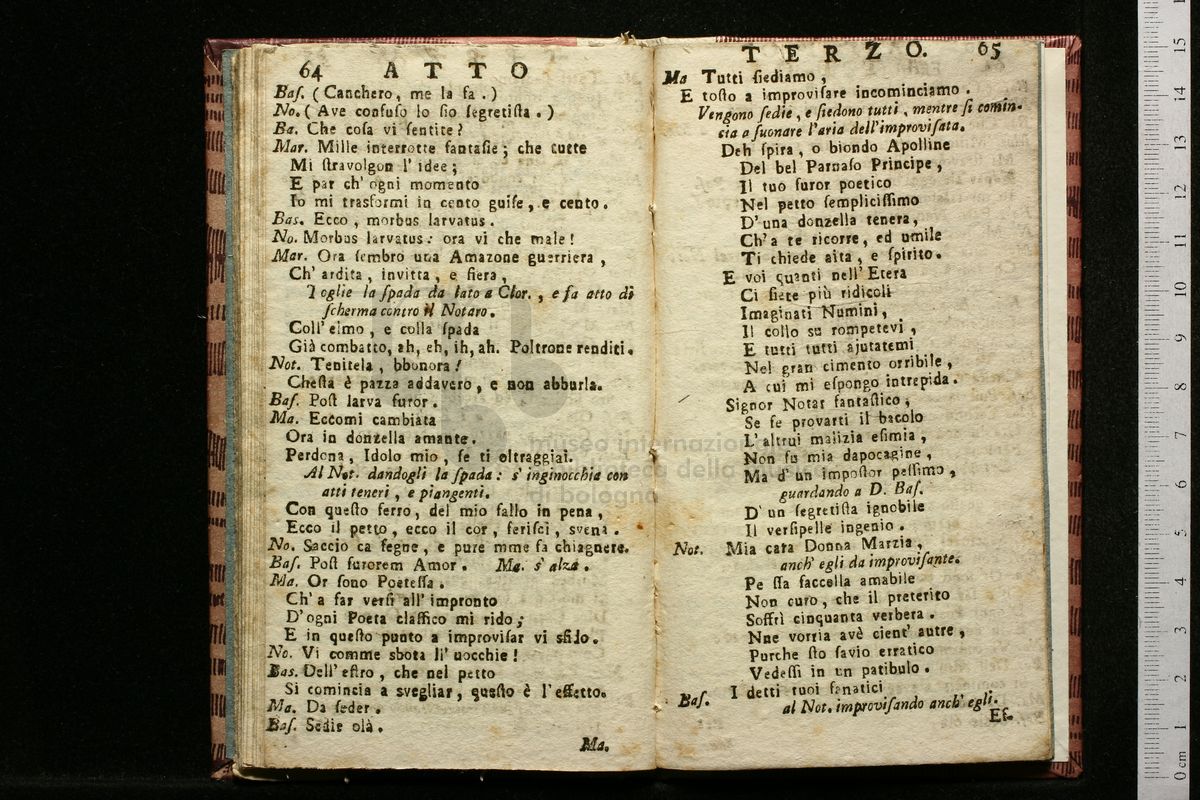 64 ATTO
Baſ. (Canchero, me la fa.)
No. (Ave confuſo lo ſio ſegretiſta.)
Ba. Che coſa vi ſentite?
Mar. Mille interrotte fantaſie; che tutte
Mi ſtravolgon l' idee;
E par ch' ogni momento
Io mi trasformi in cento guiſe, e cento.
Bas. Ecco, morbus larvatus.
No. Morbus larvatus: ora vi che male!
Mar. Ora ſembro una Amazone guerriera,
Ch' ardita, invitta, e fiera,
Toglie la ſpada da lato a Clor., e fa atto di
ſcherma contro il Notaro.
Coll' elmo, e colla ſpada
Già combatto, ah, eh, ih, ah. Poltrone renditi.
Not. Tenitela, bbonora!
Cheſta è pazza addavero, e non abburla.
Baſ. Poſt larva furor.
Ma. Eccomi cambiata
Ora in donzella amante.
Perdona, Idolo mio, ſe ti oltraggiai.
Al Not. dandogli la ſpada: s' inginocchia con
atti teneri, e piangenti.
Con queſto ferro, del mio fallo in pena,
Ecco il petto, ecco il cor, feriſci, svena.
No. Saccio ca fegne, e pure mme fa chiagnere.
Baſ. Poſt furorem Amor. Ma. s' alza.
Ma. Or ſono Poeteſſa.
Ch' a far verſi all' impronto
D' ogni Poeta claſſico mi rido;
E in queſto punto a improviſar vi sfido.
No. Vi comme sbota li' uocchie!
Bas. Dell' eſtro, che nel petto
Si comincia a svegliar, queſto è l' effetto.
Ma. Da ſeder.
Baſ. Sedie olà.
Ma.
TERZO. 65
Ma Tutti ſiediamo,
E toſto a improviſare incominciamo.
Vengono ſedie, e ſiedono tutti, mentre ſi comin-
cia a ſuonare l'aria dell'improviſata.
Deh ſpira, o biondo Apolline
Del bel Parnaſo Principe,
Il tuo furor poetico
Nel petto ſempliciſſimo
D' una donzella tenera,
Ch' a te ricorre, ed umile
Ti chiede aita, e ſpirito.
E voi quanti nell' Etera
Ci ſiete più ridicoli
Imaginati Numini,
Il collo su rompetevi,
E tutti tutti ajutatemi
Nel gran cimento orribile,
A cui mi eſpongo intrepida.
Signor Notar fantaſtico,
Se fe provarti il bacolo
L' altrui malizia eſimia,
Non fu mia dapocagine,
Ma d' un impoſtor peſſimo,
guardando a D. Baſ.
D' un ſegretiſta ignobile
Il verſipelle ingenio.
Not. Mia cara Donna Marzia,
anch' egli da improviſante.
Pe ſſa faccella amabile
Non curo, che il preterito
Soffrì cinquanta verbera.
Nne vorria avè cient' autre,
Purche ſto ſavio erratico
Vedeſſi in un patibulo.
Baſ. I detti tuoi fanatici
al Not. improviſando anch' egli.
Eſ-
museo internazionale
della
di bologna